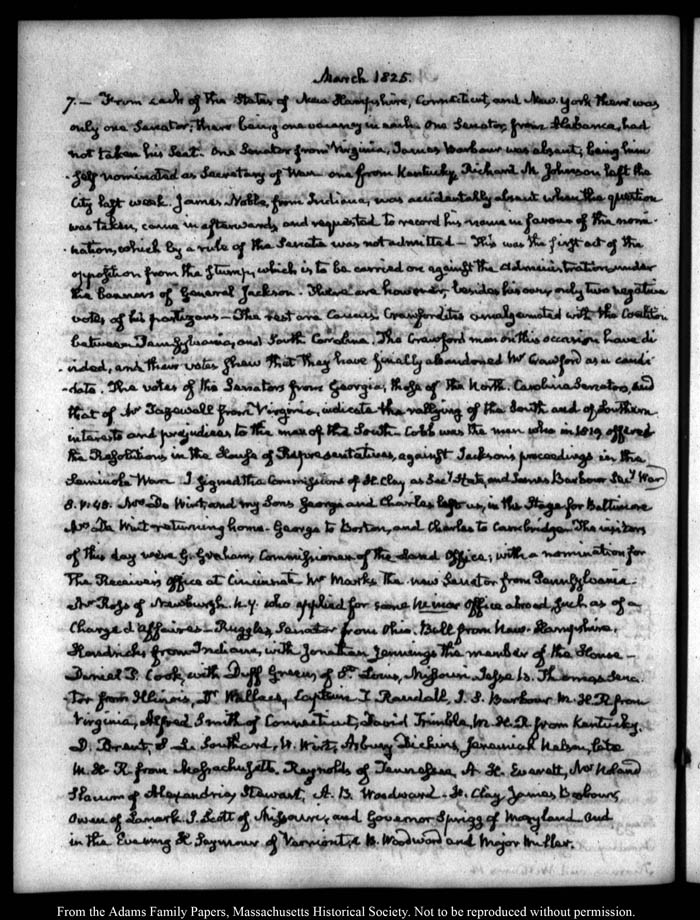 March 1825.
7.— From each of the States of New Hampshire, Connecticut, and New York there was
only one Senator; there being one vacancy in each. One Senator, from Alabama, had
not taken his Seat. One Senator from Virginia, James Barbour was absent; being him-
-self nominated as Secretary of War. one from Kentucky, Richard M. Johnson left the
City last week. James Noble, from Indiana, was accidentally absent when the question
was taken, came in afterwards, and requested to record his name in favour of the nomi-
-nation, which by a rule of the Senate was not admitted— This was the first act of the
opposition from the stump, which is to be carried on against the Administration under
the banners of General Jackson. There are however, besides his own, only two negative
votes of his partizans— The rest are Caucus Crawfordites amalgamated with the Coalition
between Pennsylvania, and South Carolina. The Crawford men on this occasion have di-
-vided, and their votes shew that they have finally abandoned Mr Crawford as a candi-
-date. The votes of the Senators from Georgia, those of the North Carolina Senators, and
that of Mr Tazewell from Virginia, indicate the rallying of the South and of Southern
interests and prejudices to the man of the South. Cobb was the man who in 1819 offered
the Resolutions in the House of Representatives, against Jackson's proceedings in the
Seminole War. I signed the Commissions of H. Clay as Secy State, and James Barbour Secy War
8. V:45. Mrs De Wint, and my Sons George and Charles left us, in the Stage for Baltimore
Mrs De Wint returning home. George to Boston, and Charles to Cambridge. The visitors
of this day were G. Graham, Commissioner of the Land Office; with a nomination for
the Receiver's Office at Cincinnati. Mr Marks the new Senator from Pennsylvania.
Mr Ross of Newburgh N.Y. who applied for some minor Office abroad, such as of a
Chargé d'Affaires— Ruggles, Senator from Ohio. Bell from New-Hampshire.
Hendricks from Indiana, with Jonathan Jennings the member of the House—
Daniel P. Cook, with Duff Green, of St Louis, Missouri. Jesse B. Thomas Sena-
tor from Illinois, Dr Wallace, Captain T Randall, J. S. Barbour M.H.R from
Virginia, Alfred Smith of Connecticut, David Trimble, M.H.R from Kentucky.
D. Brent, S. L. Southard, W. Wirt, Asbury Dickins, Jeremiah Nelson, late
M.H.R from Massachusetts. Reynolds of Tennessee, A. H. Everett, Mr Noland
Slacum of Alexandria, Stewart, A. B. Woodward. H. Clay, James Barbour,
Owen of Lanark. J. Scott of Missouri, and Governor Sprigg of Maryland. and
in the Evening H Seymour of Vermont, A B. Woodward and Major Miller.
From the Adams Family Papers, Massachusetts Historical Society. Not to be reproduced without permission.